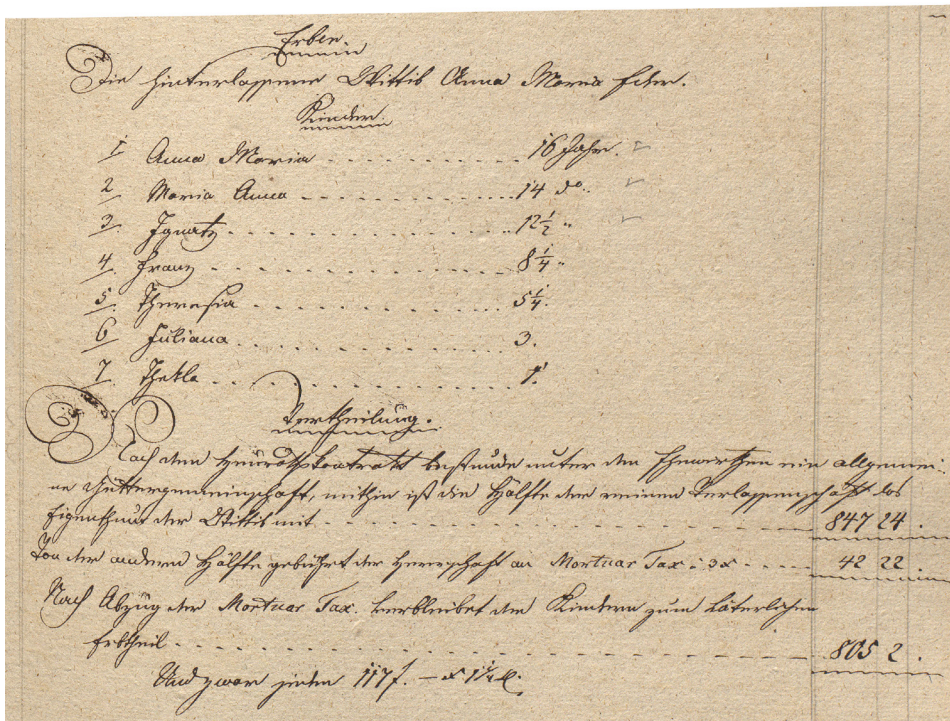 Erben.
Die hinterlassene Wittib Anna Maria Eder.
Kinder.
1. Anna Maria - - - - - - - - - 16 Jahr.
2. Maria Anna - - - - - - - - - 14 do.
3. Ignatz - - - - - - - - - - - 12 1/2 "
4. Franz - - - - - - - - - - - 8 1/4 "
5. Theresia - - - - - - - - - - 5 1/4.
6 Juliana - - - - - - - - - - 3.
7. Thekla - - - - - - - - - - - 1.
Vertheilung.
Nach dem Heurathskontrakt bestunde unter den Ehewirthen ein allgemei-
ne Güttergemeinschaft, mithin ist die Hälfte der reinen Verlassenschaft das
Eigenthum der Wittib mit - - - - - - - - - - 847 24.
Von der andern Hälfte gebührt der Herrschaft an Mortuar Tax à 3 x - - - - 42 22.
Nach Abzug der Mortuar Tax. verbleibet den Kindern zum väterlichen
Erbtheil - - - - - - - - - - - - - - - 805 2.
Und zwar jeden 117 f. — x 1 1/4 d.